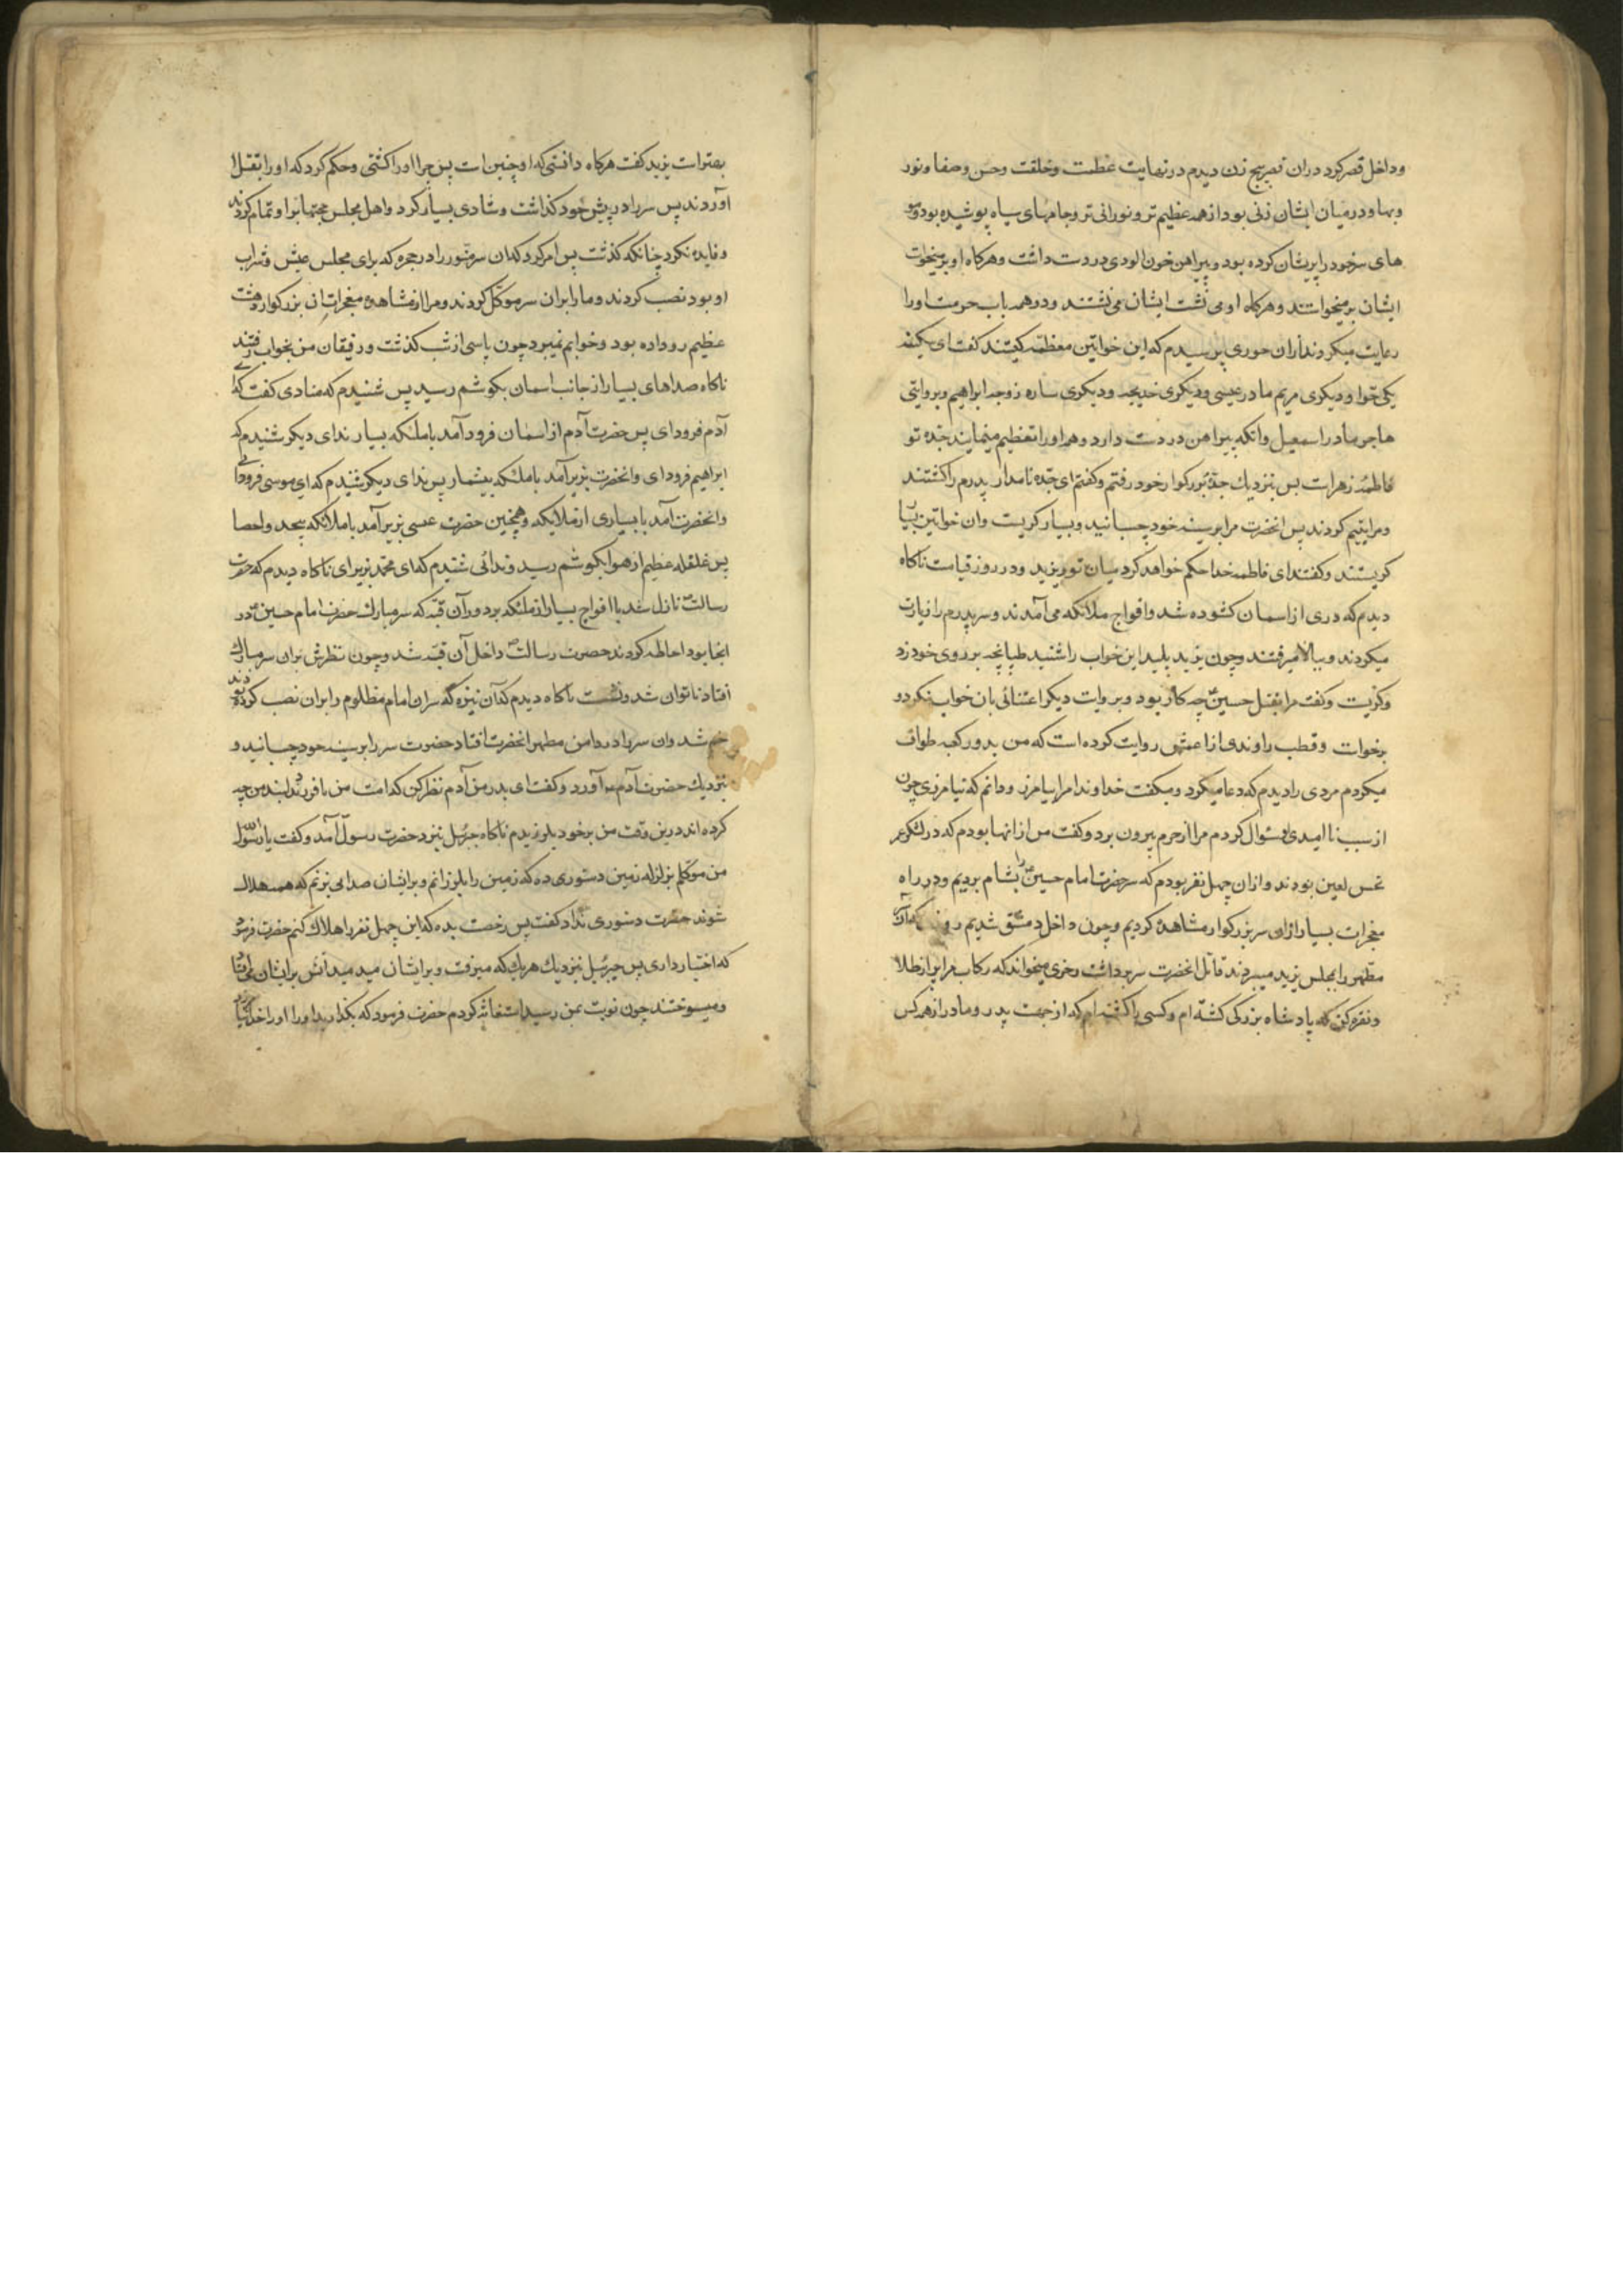 وداخل قصر کرد دران قصر پنج زن دیدم در نهایت عظمت وخلقت وحسن وصفا ونور
وبها ودر میان ایشان زنی بود از همه عظیم تر و نورانی تر وجامهای سیاه پوشیده بود ومو
های سر خود را پریشان کرده بود وپیراهن خون الودی در دست داشت وهرکاه او برمیخواست
ایشان برمیخواستند وهرکاه او می نشست ایشان می نشستند ودر همه باب حرمت اورا
رعایت میکردند ازان حوری پرسیدم که این خواتین معظمه کیستند کفت ای سکینه
یکی حوا ودیکری مریم مادر عیسی ودیکری خدیجه ودیکری ساره زوجه ابراهیم وبروایتی
هاجر مادر اسمعیل وانکه پیراهن در دست دارد وهمه اورا تعظیم مینمایند جده تو
فاطمه زهراست پس بنزدیك جده بزرکوار خود رفتم وکفتم ای جده نامدار پدرم را کشتند
ومرا یتیم کردند پس انحضرت مرا بر سینه خود چسبانید وبسیار کریست وان خواتین بسیار
کریستند وکفتند ای فاطمه خدا حکم خواهد کرد میان تو ویزید ودر روز قیامت ناکاه
دیدم که دری از اسمان کشوده شد وافواج ملائکه می آمدند وسر پدرم را زیارت
میکردند وببالا میرفتند وچون یزید پلید این خواب را شنید طپانچه بر روی خود زد
وکریست وکفت مرا بقتل حسین چه کار بود وبروایت دیکر اعتنائی بان خواب نکرد و
برخواست وقطب راوندی از اعمش روایت کرده است که من بدور کعبه طواف
میکردم مردی را دیدم که دعا میکرد ومیکفت خداوندا مرا بیامرز ودانم که نیامرزی چون
از سبب ناامیدی او سئوال کردم مرا از حرم بیرون برد وکفت من از انها بودم که در لشکر عمر
نحس لعین بودند وازان چهل نفر بودم که سر حضرت امام حسین را بشام بردیم ودر راه
معجزات بسیار ازان سر بزرکوار مشاهده کردیم وچون داخل دمشق شدیم روزی که آن
مطهر را بمجلس یزید میبردند قاتل انحضرت سر برداشت ورجزی میخواند که رکاب مرا پر از طلا
ونقره کن که پادشاه بزرکی کشته ام وکسی را کشته ام که از جهت پدر ومادر از همه کس
بهتر است یزید کفت هرکاه دانستی که او چنین است پس چرا اورا کشتی وحکم کرد که اورا بقتل
آوردند پس سر را در پیش خود کذاشت وشادی بسیار کرد واهل مجلس حجتها بر او تمام کردند
وفایده نکرد چنانکه کذشت پس امر کرد که ان سر منور را در حجره که برای مجلس عیش وشراب
او بود نصب کردند ومارا بران سر موکل کردند ومرا از مشاهده معجزات ان بزرکوار دهشت
عظیم رو داده بود وخوابم نمیبرد چون پاسی از شب کذشت ورفیقان من بخواب رفتند
ناکاه صداهای بسیار از جانب اسمان بکوشم رسید پس شنیدم که منادی کفت که ای
آدم فرود ای پس حضرت آدم از اسمان فرود آمد با ملئکه بسیار ندای دیکر شنیدم که
ابراهیم فرود ای وانحضرت بزیر آمد با ملئکه بیشمار پس ندای دیکر شنیدم که ای موسی فرود ای
وانحضرت آمد با بسیاری از ملائکه وهمچنین حضرت عیسی بزیر آمد با ملائکه بیحد واحصا
پس غلغله عظیم از هوا بکوشم رسید وندائی شنیدم که ای محمد بزیر ای ناکاه دیدم که حضرت
رسالت نازل شد با افواج بسیار از ملئکه بر دور آن قبه که سر مبارك حضرت امام حسین در
انجا بود احاطه کردند حضرت رسالت داخل آن قبه شد وچون نظرش بران سر مبارك
افتاد ناتوان شد ونشست ناکاه دیدم که آن نیزه که سر ان امام مظلوم را بران نصب کرده بودند
خم شد وان سر در دامن مطهر انحضرت افتاد حضرت سر را بر سینه خود چسبانید و
بنزدیك حضرت آدم آورد وکفت ای پدر من آدم نظر کن که امت من با فرزند دلبند من چه
کرده اند درین وقت من بر خود بلرزیدم ناکاه جبرئیل بنزد حضرت رسول آمد وکفت یا رسول الله
من موکلم بزلزله زمین دستوری ده که زمین را بلرزانم وبر ایشان صدایی بزنم که همه هلاك
شوند حضرت دستوری نداد کفت پس رخصت بده که این چهل نفر را هلاك کنم حضرت فرمود
که اختیار داری پس جبرئیل نزدیك هر یك که میرفت وبر ایشان میدمید آتش بر ایشان می افتاد
ومیسوختند چون نوبت بمن رسید استغاثه کردم حضرت فرمود که بکذارید اورا خدا نیامرزد